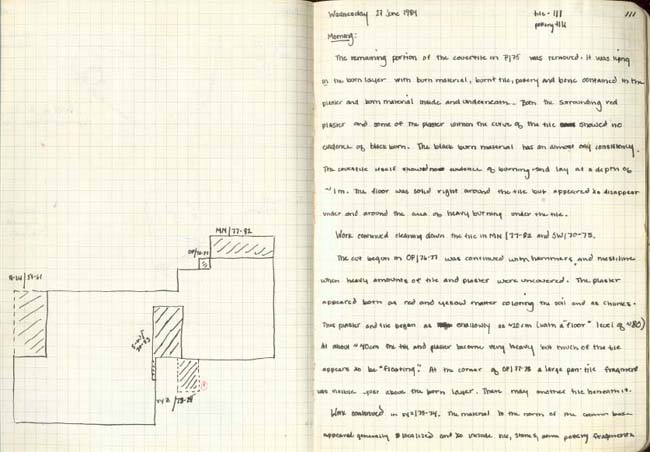 MN/77-82
OP/76-77
XYZ/73-78
Wednesday 27 June 1984
tile - 111
pottery
111
Morning:
The remaining portion of the covertile in P/75 was removed. It was lying
in the burn layer with burn material, burnt tile, pottery and bone contained in the
plaster and burn material inside and underneath. Both the surrounding red
plaster and some of the plaster within the curve of the tile showed no
evidence of black burn. The black burn material has an almost oily consistency.
The covertile itself showed evidence of burning and lay at a depth of
~1m. The floor was solid right around the tile but appeared to disappear
under and around the area of heavy burning under the tile.
Work continued cleaning down the tile in MN/77-82 and SW/70-75.
The cut begun in OP/76-77 was continued with hammers and
when heavy amounts of tile and plaster were uncovered. The plaster
appeared both as red and yellow matter coloring the soil and as chunks.
This plaster and tile began as shallowly as ~20cm (with a "floor" level of ~80)
At about ~40cm the tile and plaster became very heavy but much of the tile
appears to be "floating". At the corner of a large pan tile fragment
was visible just above the burn layer. There may another tile beneath it.
Work continued in XYZ/73-74. The material to the north of the column base
appeared generally and to include tile, stones, some pottery fragments